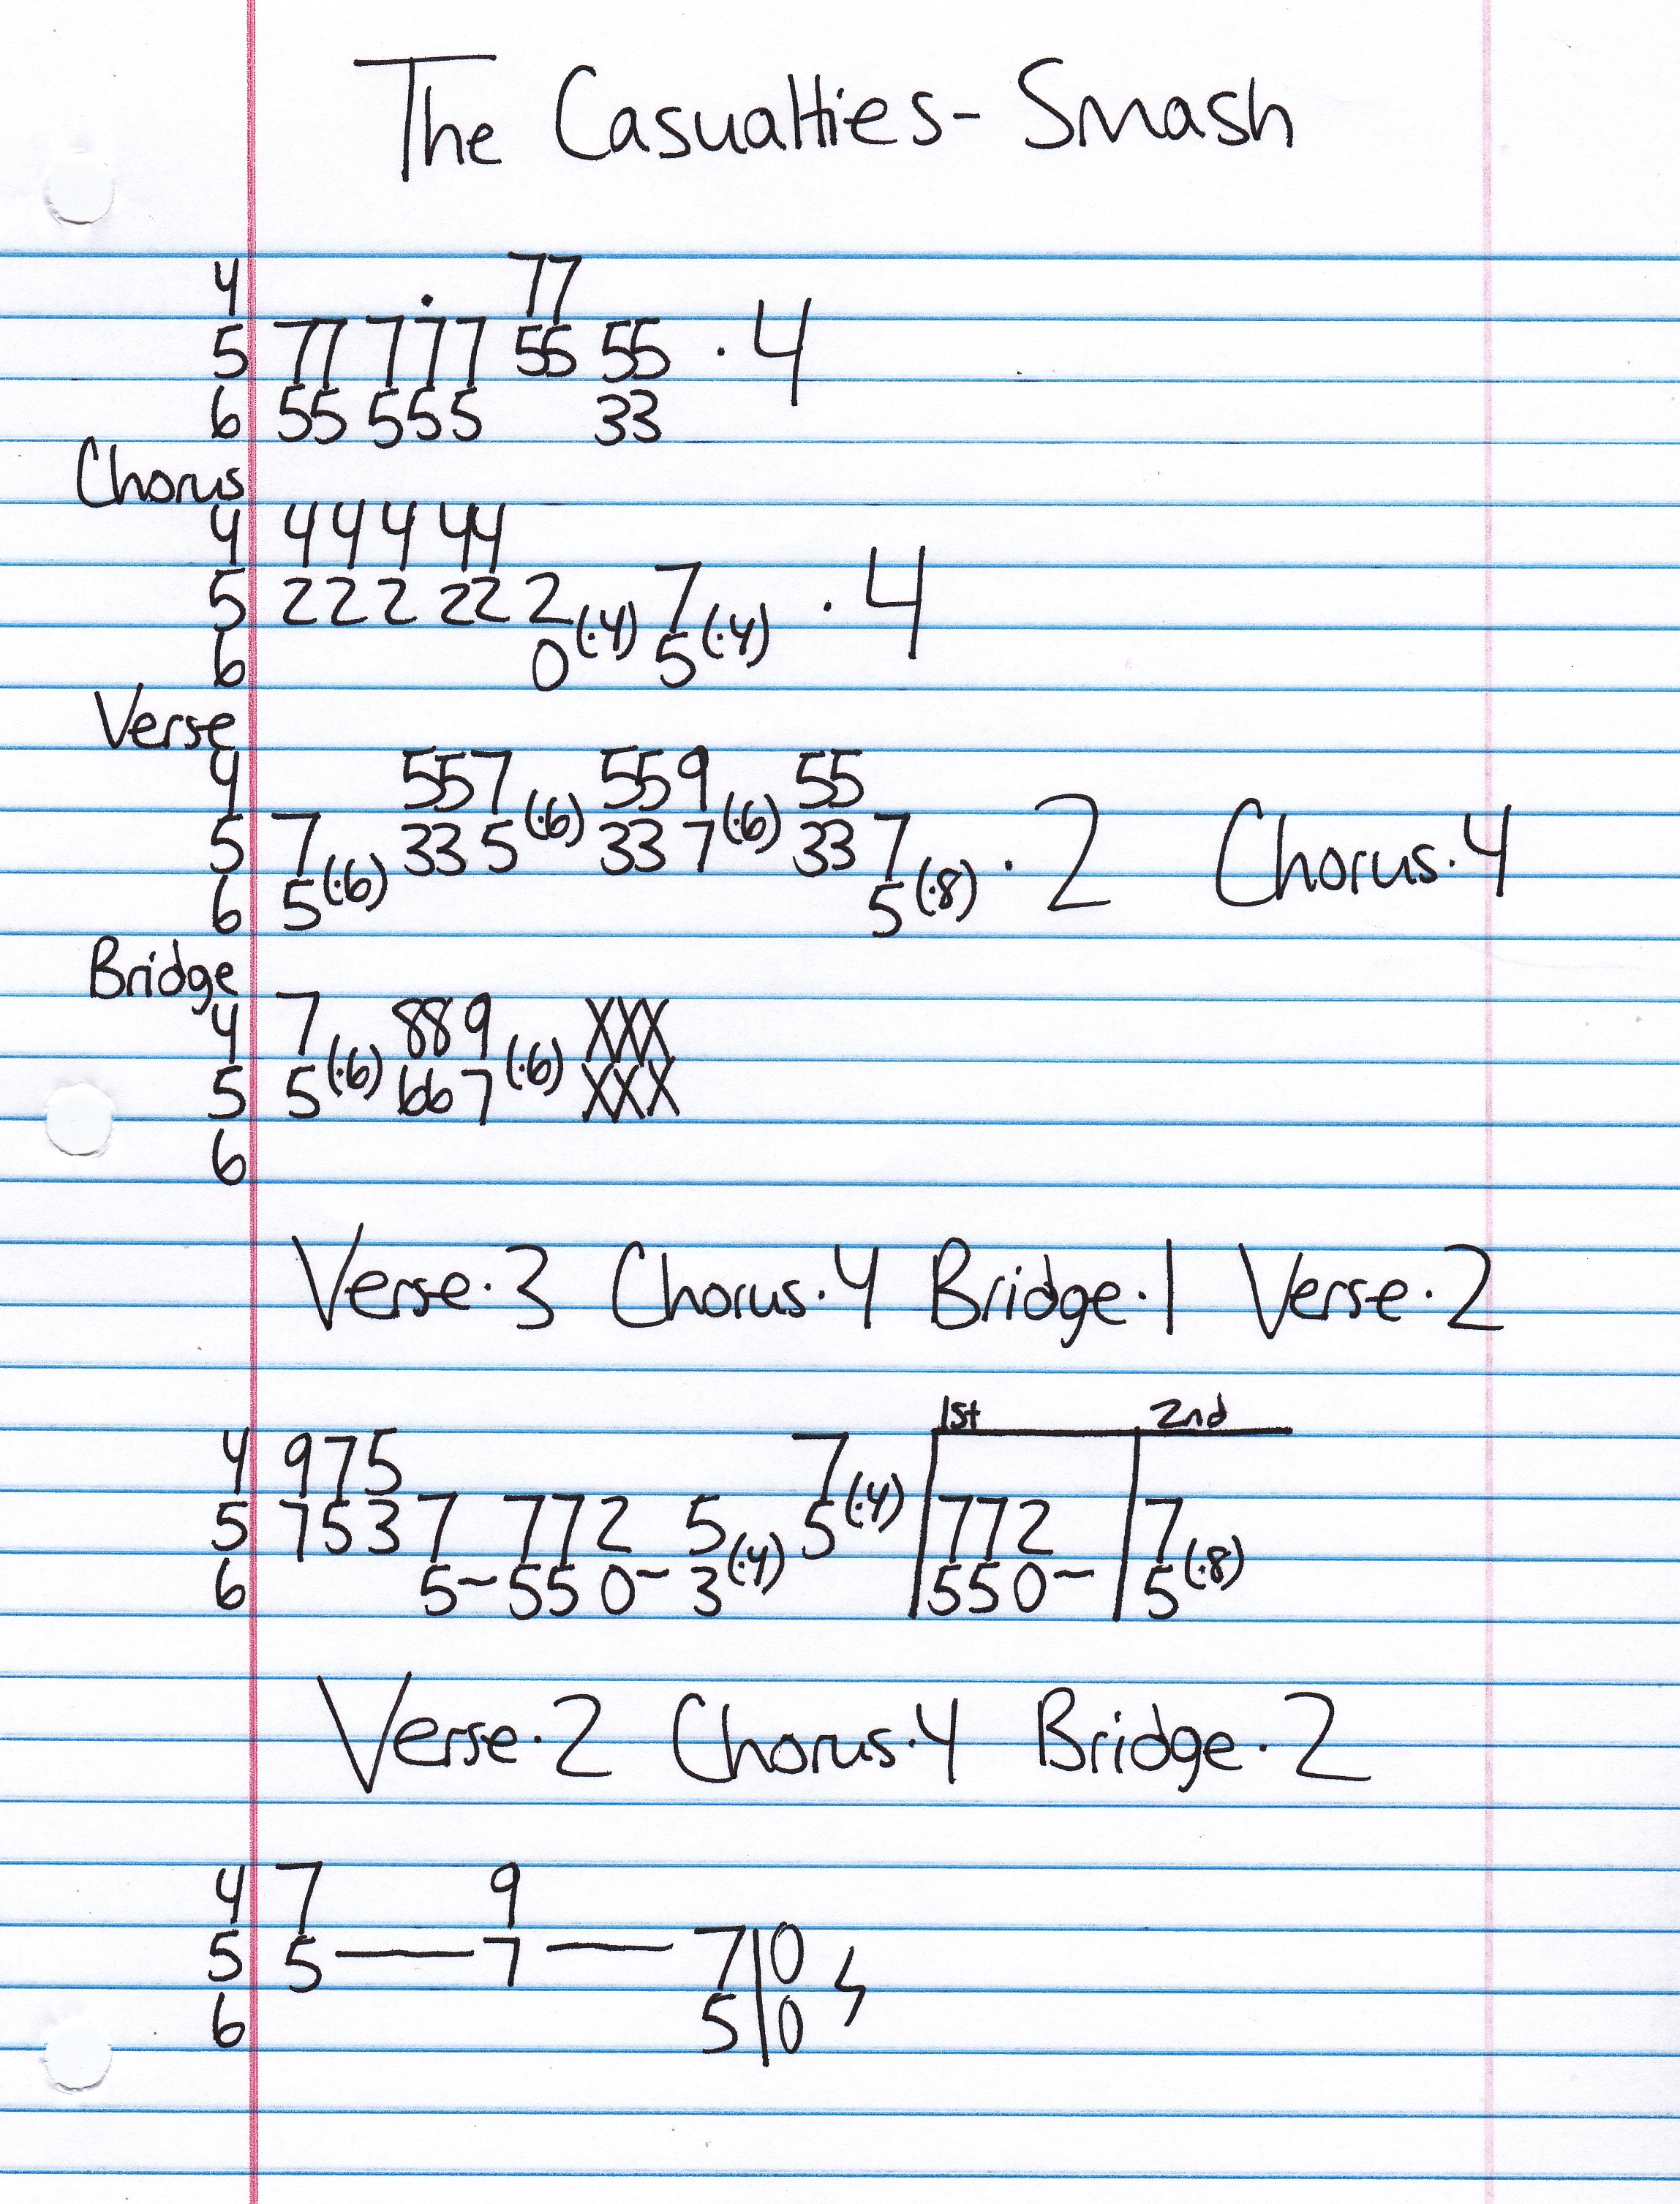 The Casualties- Smash
4 77
5 77 77̇7 55 55 · 4
6 55 555 33
Chorus
4 4 4 4 44
5 2 2 2 22 2(·4) 7(·4) · 4
6 0 5
Verse
4 557(·6) 559(·6) 55
5 7(·6) 33 5 33 7 33 7(·8) · 2 Chorus·4
6 5 5
Bridge
4 7(·6) 889(·6) XXX
5 5 667 XXX
6
Verse·3 Chorus·4 Bridge·1 Verse·2
1st 2nd
4 975 7(·4)
5 7537 772 5(·4) 5 | 772 | 7(·8)
6 5~550~ 3 | 550~ | 5
Verse·2 Chorus·4 Bridge·2
4 7 9
5 5 — 7 — 7|0
6 5|0